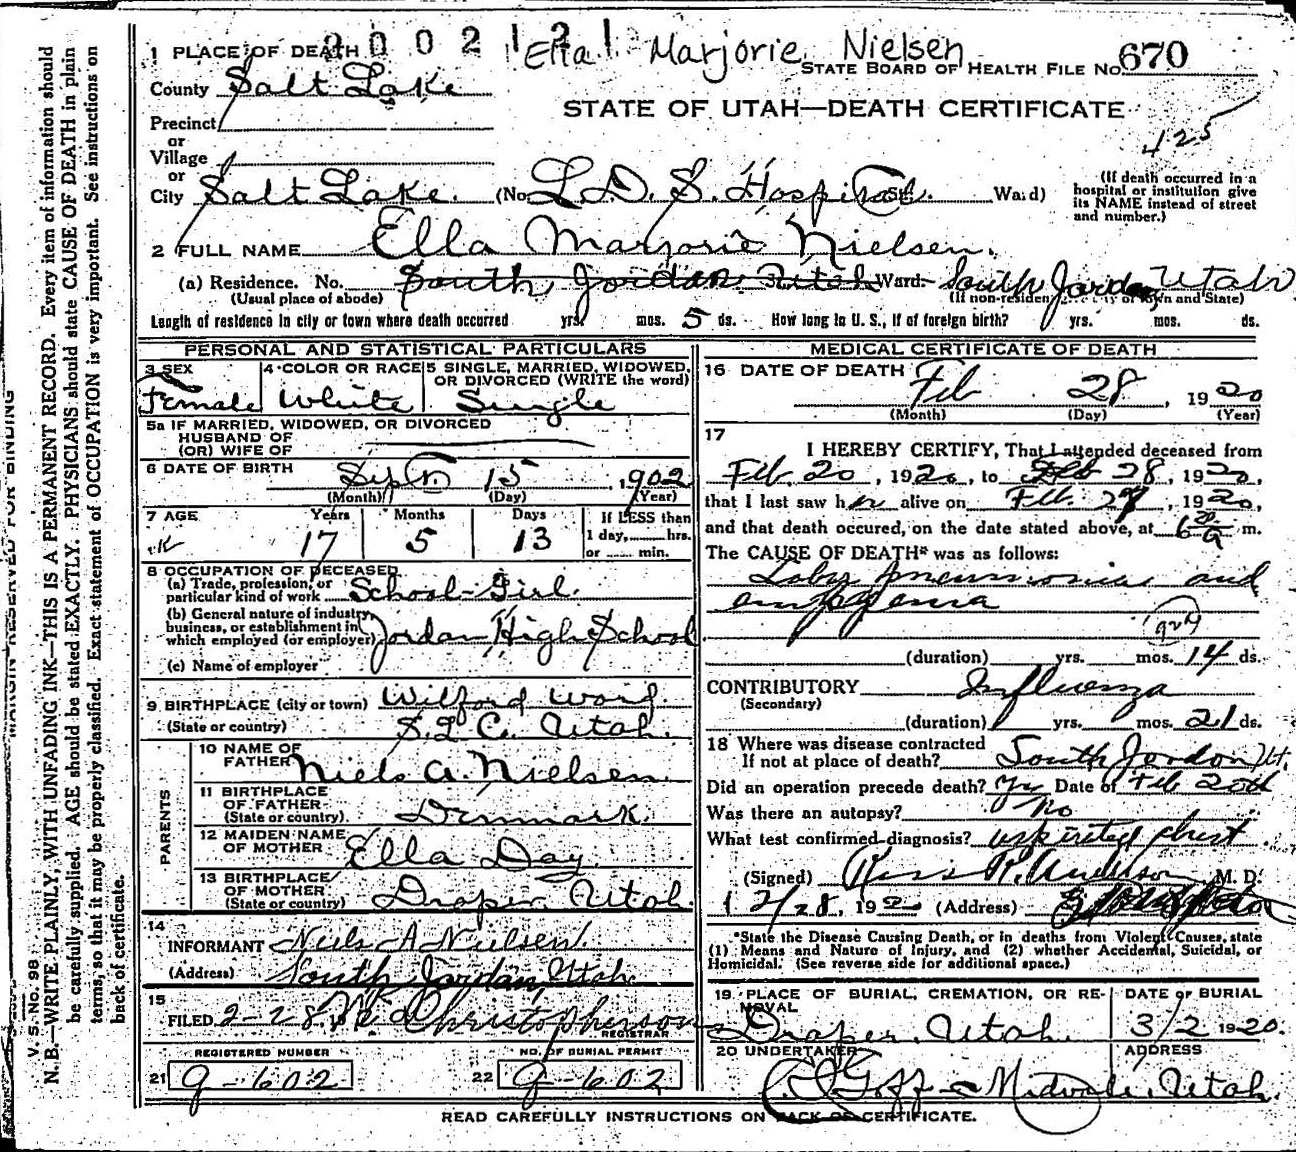 2 0 0 2 1 2 1
Ella Marjorie Nielsen
1 PLACE OF DEATH
STATE BOARD OF HEALTH FILE No. 670
County Salt Lake
STATE OF UTAH—DEATH CERTIFICATE
425
Precinct
or
Village
or
City Salt Lake. (No. L. D. S. Hospital St. Ward)
(If death occurred in a
hospital or institution give
its NAME instead of street
and number.)
2 FULL NAME Ella Marjorie Nielsen.
(a) Residence. No. South Jordan Utah Ward. South Jordan, Utah
(Usual place of abode) (If non-resident give city or town and State)
Length of residence in city or town where death occurred yrs. mos. 5 ds. How long in U. S., if of foreign birth? yrs. mos. ds.
PERSONAL AND STATISTICAL PARTICULARS
3 SEX Female
4 COLOR OR RACE White
5 SINGLE, MARRIED, WIDOWED,
OR DIVORCED (WRITE the word)
Single
5a IF MARRIED, WIDOWED, OR DIVORCED
HUSBAND OF
(OR) WIFE OF
6 DATE OF BIRTH Sept. 15, 1902
(Month) (Day) (Year)
7 AGE Years Months Days If LESS than
1 day, hrs.
or min.
17 5 13
8 OCCUPATION OF DECEASED
(a) Trade, profession, or
particular kind of work School-Girl.
(b) General nature of industry,
business, or establishment in
which employed (or employer) Jordan High School
(c) Name of employer
9 BIRTHPLACE (city or town) Wilford Ward.
(State or country) S. L. C. Utah.
PARENTS
10 NAME OF
FATHER Niels A. Nielsen.
11 BIRTHPLACE
OF FATHER
(State or country) Denmark.
12 MAIDEN NAME
OF MOTHER Ella Day.
13 BIRTHPLACE
OF MOTHER
(State or country) Draper Utah.
14
INFORMANT Niels A Nielsen.
(Address) South Jordan, Utah.
15
FILED 2-28. Christopherson
REGISTRAR
REGISTERED NUMBER NO. OF BURIAL PERMIT
21 9-602 22 9-602
MEDICAL CERTIFICATE OF DEATH
16 DATE OF DEATH Feb 28, 1920
(Month) (Day) (Year)
17
I HEREBY CERTIFY, That I attended deceased from
Feb. 20, 1920, to Feb 28, 1920,
that I last saw her alive on Feb. 27, 1920,
and that death occured, on the date stated above, at 6 20 a m.
The CAUSE OF DEATH* was as follows:
Lobar pneumonia and
empyema
(duration) yrs. mos. 14 ds.
CONTRIBUTORY Influenza
(Secondary)
(duration) yrs. mos. 21 ds.
18 Where was disease contracted
If not at place of death? South Jordan Ut.
Did an operation precede death? Yes Date of Feb 20th
Was there an autopsy? No
What test confirmed diagnosis? aspirated chest.
(Signed) Anderson, M. D.
2/28, 1920 (Address)
*State the Disease Causing Death, or in deaths from Violent Causes, state
(1) Means and Nature of Injury, and (2) whether Accidental, Suicidal, or
Homicidal. (See reverse side for additional space.)
19 PLACE OF BURIAL, CREMATION, OR RE-
MOVAL
Draper, Utah.
DATE OF BURIAL
3/2 1920.
20 UNDERTAKER ADDRESS
Goff - Midvale, Utah.
READ CAREFULLY INSTRUCTIONS ON BACK OF CERTIFICATE.
MARGIN RESERVED FOR BINDING
V. S. No. 98
N. B.—WRITE PLAINLY, WITH UNFADING INK—THIS IS A PERMANENT RECORD. Every item of information should
be carefully supplied. AGE should be stated EXACTLY. PHYSICIANS should state CAUSE OF DEATH in plain
terms, so that it may be properly classified. Exact statement of OCCUPATION is very important. See instructions on
back of certificate.